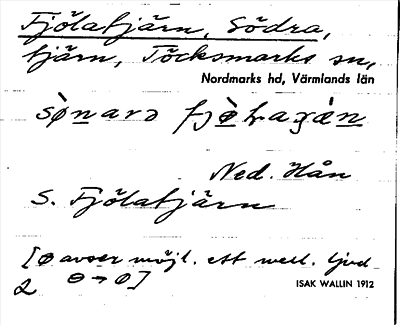 Fjölatjärn, Södra,
tjärn, Töcksmarks sn,
Nordmarks hd, Värmlands län
Ned. Hån
S. Fjölatjärn
[ø avser möjl. ett mell. ljud
2 ɵ → ø]
ISAK WALLIN 1912